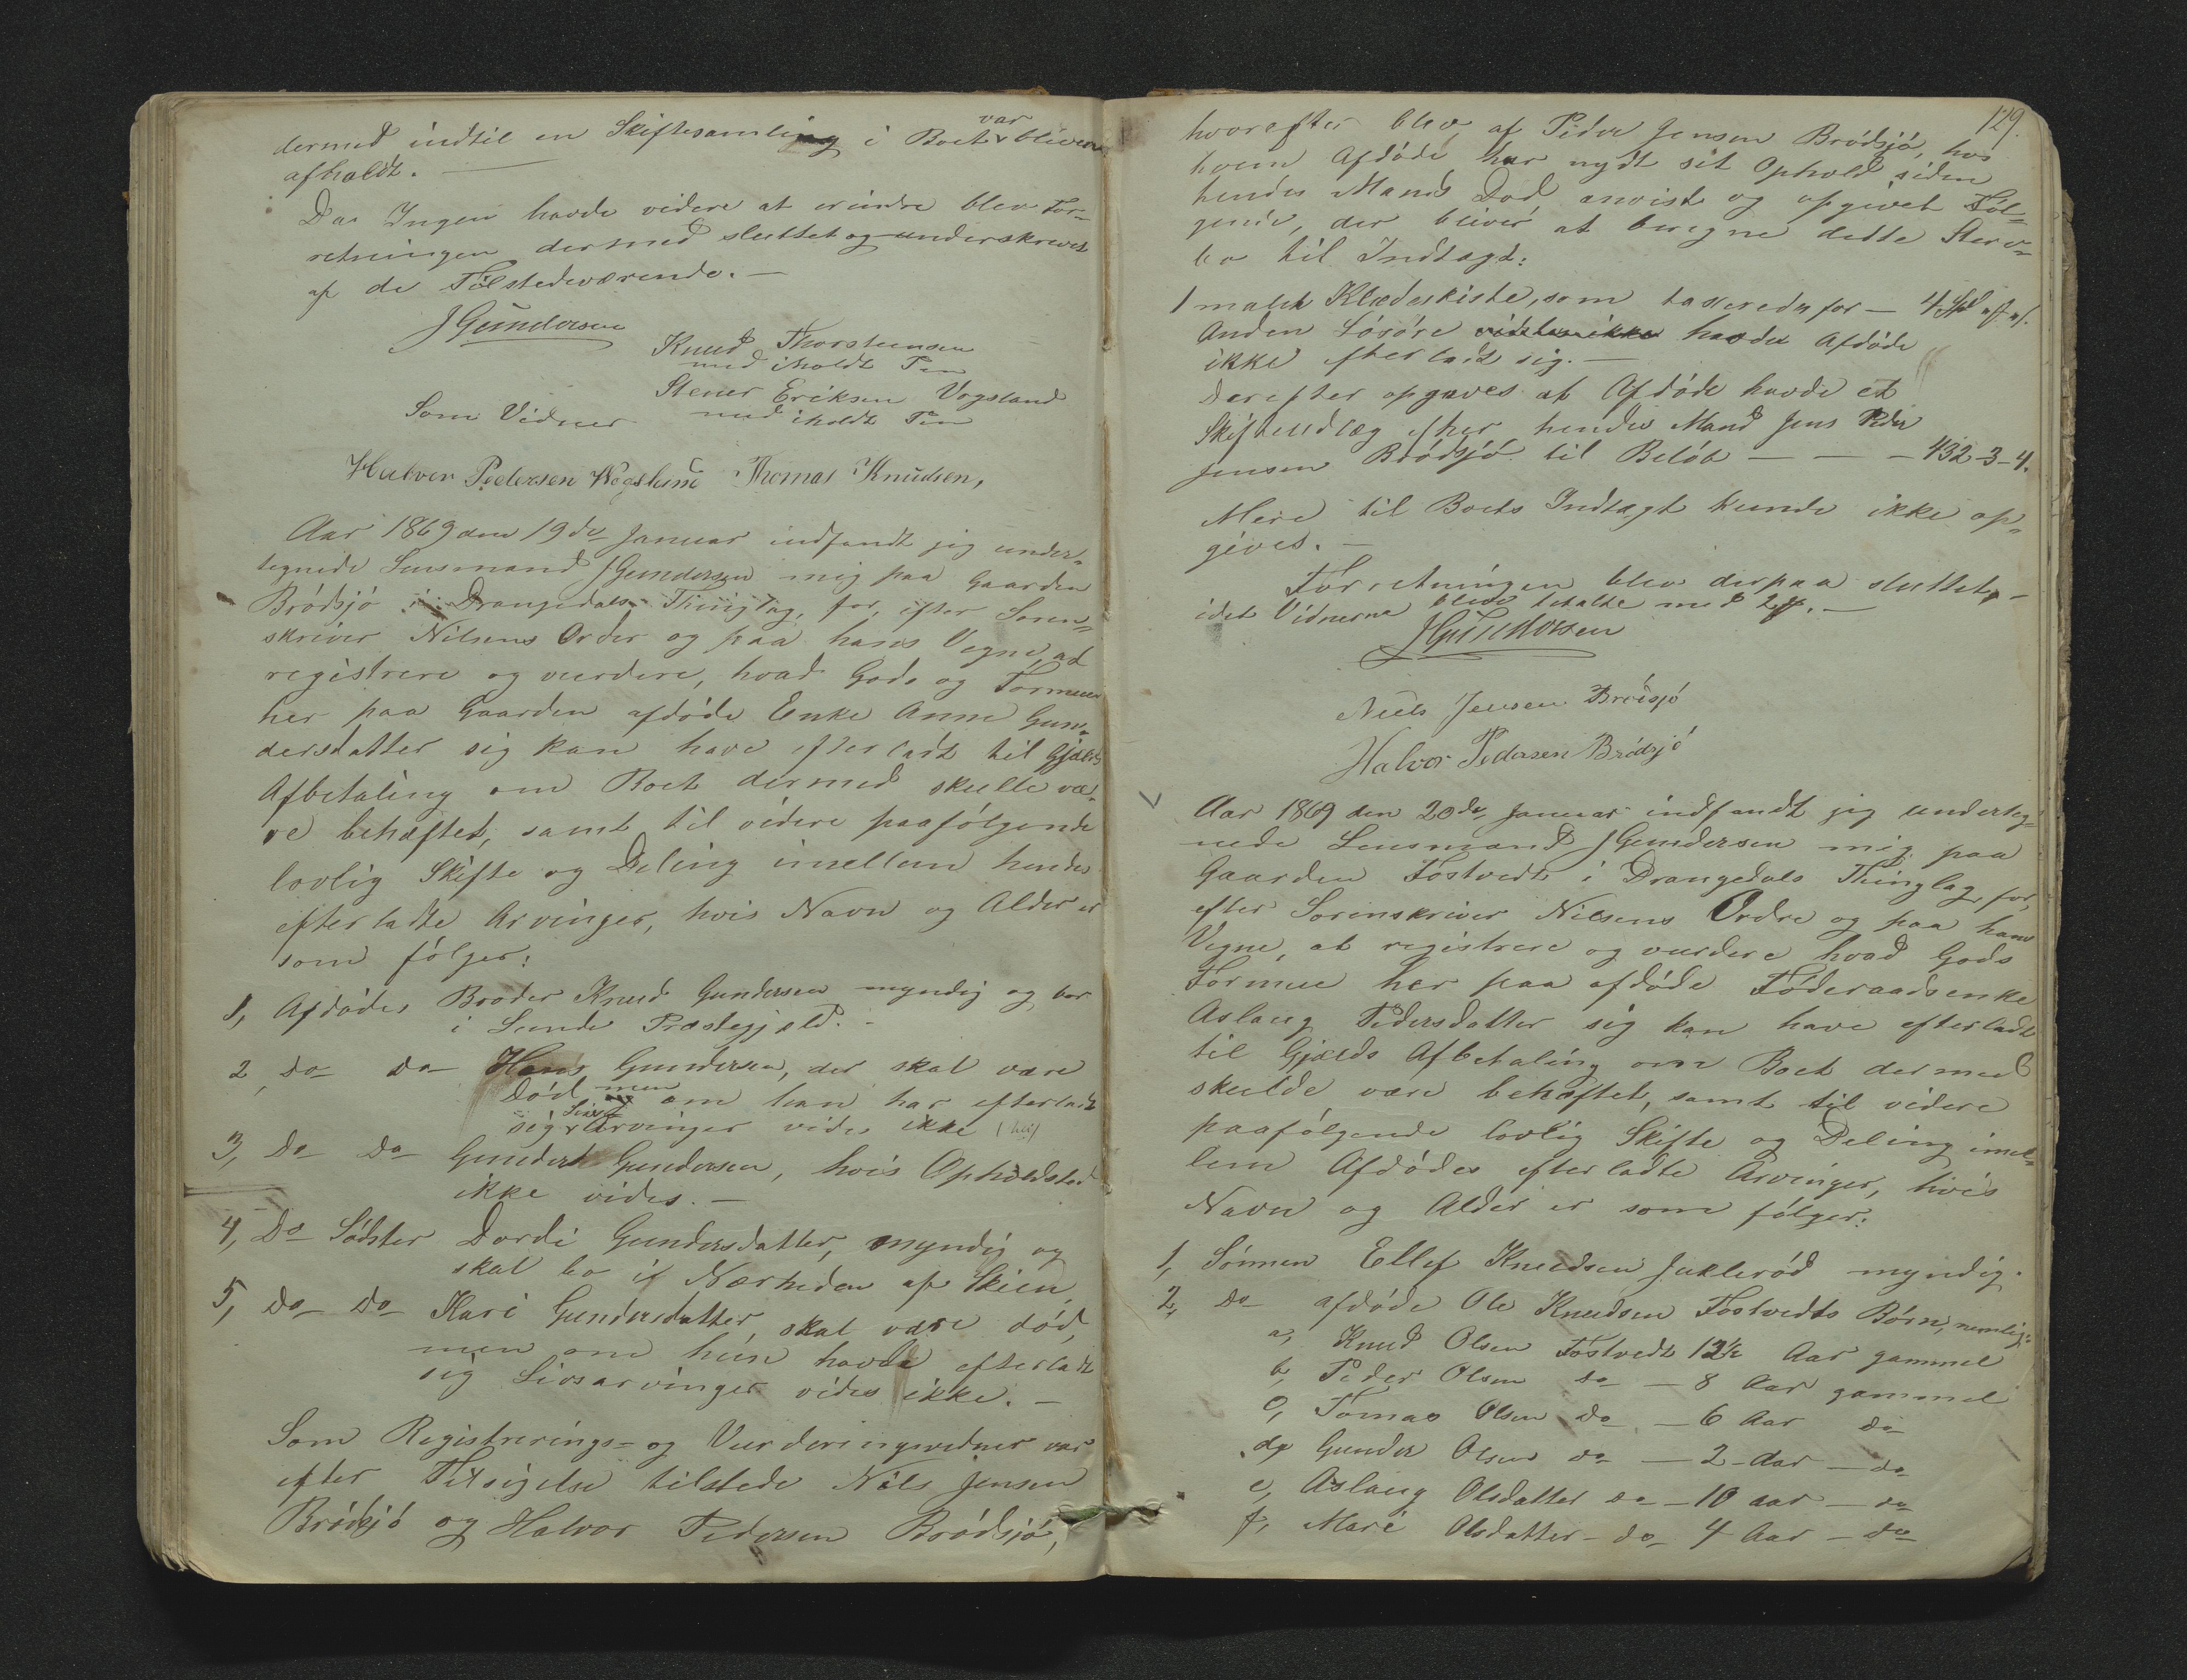 dermed indtil en Skiftesamling i Boet var bleven
afholdt. —
Da Ingen havde videre at erindre blev For-
retningen dermed sluttet og underskrevet
af de Tilstedeværende. —
JGundersen
Knud Thorsteensen
med iholdt Pen
Stener Eriksen Vogsland
med iholdt Pen
Som Vidner
Halvor Pedersen Thomas Knudsen,
Aar 1869 den 19de Januar indfandt jeg under-
tegnede Lensmand JGundersen mig paa Gaarden
Brødsjø i Drangedals Thinglag, for, efter Soren-
skriver Nilsens Order og paa hans Vegne, at
registrere og vurdere, hvad Gods og Formue
her paa Gaarden afdøde Enke Anne Gun-
dersdatter sig kan have efterladt til Gjælds
Afbetaling om Boet dermed skulle væ-
re behæftet, samt til videre paafølgende
lovlig Skifte og Deling imellem hendes
efterladte Arvinger, hvis Navn og Alder er
som følger:
1, Afdødes Broder Knud Gundersen myndig og bor
i Sande Præstegjæld. -
2, do do Hans Gundersen, der skal være
død men om han har efterladt
sig Livsarvinger vides ikke
3, do do Gunder Gundersen, hvis Opholdsted
ikke vides. —
4, Do Södster Dordi Gundersdatter, myndig og
skal bo i Nærheden af Skien
5, do do Kari Gundersdatter, skal være død,
men om hun havde efterladt
sig Livsarvinger vides ikke. —
Som Registrerings- og Vurderingsvidner var
efter Tilsigelse tilstede Nils Jensen
Brødsjø og Halvor Pedersen Brødsjø,
129.
hvorefter blev af Peder Jensen Brødsjø, hos
hvem Afdøde har nydt sit Ophold siden
hendes Mands Død anvist og opgivet Føl-
gende, der bliver at beregne dette Sterv-
bo til Indtægt:
1 malet Klædeskiste, som taxeredes for — 4
Anden Løsøre vidstes ikke havde Afdøde
ikke efterladt sig. —
Derefter opgaves at Afdøde havde et
Skifteudlæg efter hendes Mand Jens Peder
Jensen Brødsjø til Beløb — — — 432-3-4.
Mere til Boets Indtægt kunde ikke op-
gives. —
Forretningen blev derpaa sluttet, —
idet Vidnerne bleve betalte med 2 —
JGundersen
Niels Jensen Brödsjö
Halvor Pedersen Brödsjö
Aar 1869 den 20de Januar indfandt jeg underteg-
nede Lensmand JGundersen mig paa
Gaarden Fostvedt i Drangedals Thinglag for,
efter Sorenskriver Nilsens Ordre og paa hans
Vegne, at registrere og vurdere hvad Gods
Formue her paa afdøde Føderaadsenke
Aslaug Pedersdatter sig kan have efterladt
til Gjælds Afbetaling om Boet dermed
skulde være behæftet, samt til videre
paafølgende lovlig Skifte og Deling imel-
lem Afdødes efterladte Arvinger, hvis
Navn og Alder er som følger:
1, Sønnen Ellef Knudsen Juklerød myndig.
2, do afdøde Ole Knudsen Fostvedts Børn, nemlig:
a, Knud Olsen Fostvedt 12½ Aar gammel
b, Peder Olsen do — 8 Aar gammel
c, Tomas Olsen do — 6 Aar do
d, Gunder Olsen do — 2 Aar — do
e, Aslaug Olsdatter do — 10 aar — do
f, Mari Olsdatter — do 4 Aar — do